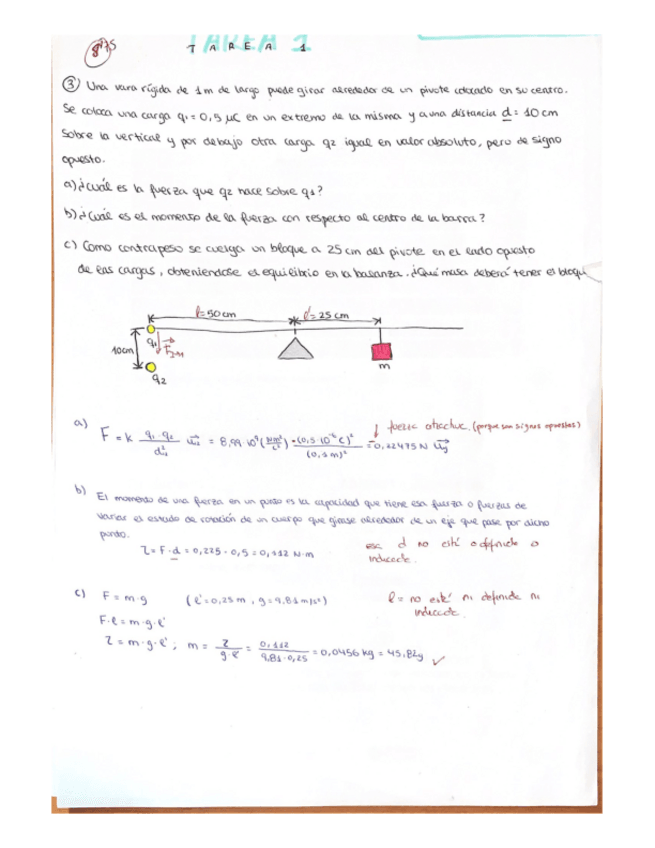 8'75
TAREA 1
③ Una vara rígida de 1m de largo puede girar alrededor de un pivote colocado en su centro.
Se coloca una carga q₁=0,5 μC en un extremo de la misma y a una distancia d=10cm
sobre la vertical y por debajo otra carga q2 igual en valor absoluto, pero de signo
opuesto.
a) ¿Cuál es la fuerza que q2 hace sobre q₁?
b) ¿Cuál es el momento de la fuerza con respecto al centro de la barra?
c) Como contrapeso se cuelga un bloque a 25cm del pivote en el lado opuesto
de las cargas, obteniéndose el equilibrio en la balanza. ¿Qué masa deberá tener el bloqu
l=50cm
l'=25cm
10cm
q₁
q2
m
a)
fuerza atractiva. (porque son signos opuestos)
b) El momento de una fuerza en un punto es la capacidad que tiene esa fuerza o fuerzas de
variar el estado de rotación de un cuerpo que girase alrededor de un eje que pase por dicho
punto.
τ=F·d=0,225·0,5=0,112 N·m
esa d no está definida o
indicada.
c) F=m·g (l'=0,25m, g=9,81m/s²)
l= no está ni definida ni
indicada.
F·l=m·g·l'
τ=m·g·l'; m= τ/(g·l') = 0,112/(9,81·0,25) =0,0456kg=45,82g ✓